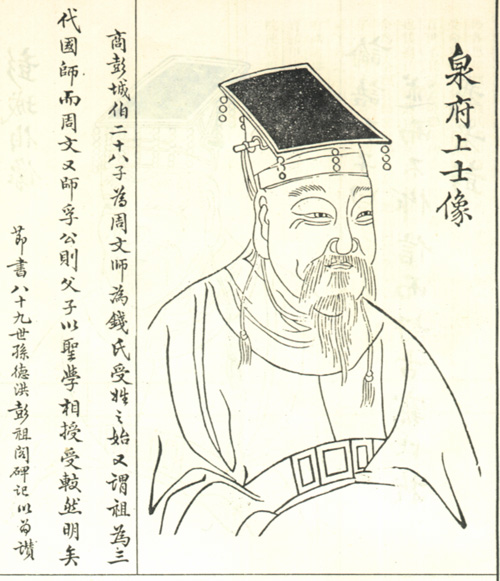 泉府上士像
商彭城伯二十八子為周文師為錢氏受姓之始又謂祖為三
代國師而周文又師孚公則父子以聖學相授受較然明矣
節書八十九世孫德洪彭祖閣碑記以為讚